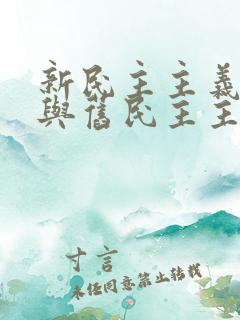 新民主主義
與舊民主主
寸言
未任同意禁止转载